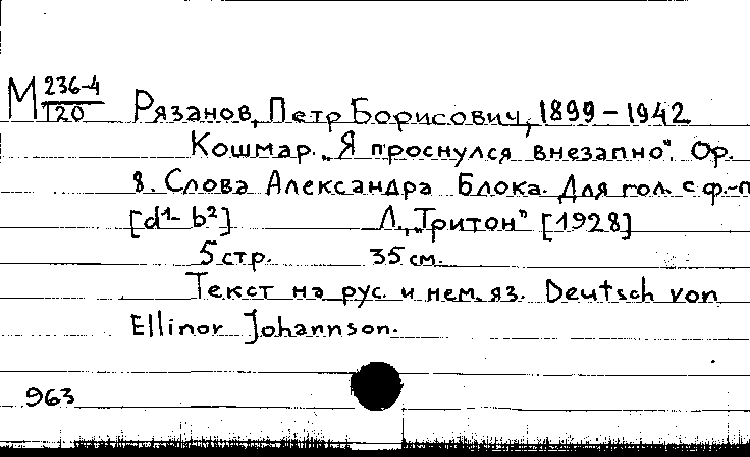 М 236-4
120
Рязанов, Петр Борисович, 1899-1942
Кошмар. „Я проснулся внезапно". Op.
8. Слова Александра Блока. Для гол. с ф.-п
[d¹- b²] Л., „Тритон" [1928]
5 стр. 35 см.
Текст на рус. и нем. яз. Deutsch von
Ellinor Johannson.
963